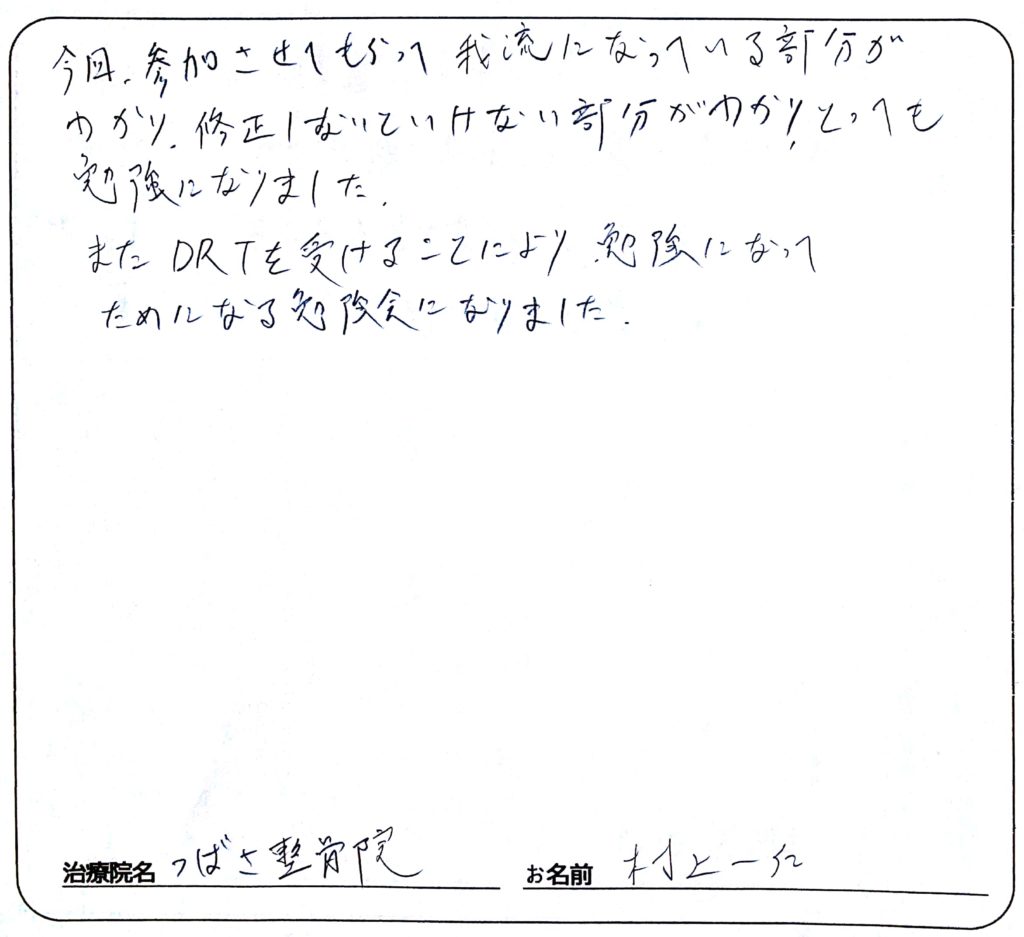 今回、参加させてもらって 我流になっている部分が
わかり、修正しないといけない部分がわかり、とっても
勉強になりました。
またDRTを受けることにより、勉強になって
ためになる勉強会になりました。
治療院名 つばさ整骨院
お名前 村上一仁